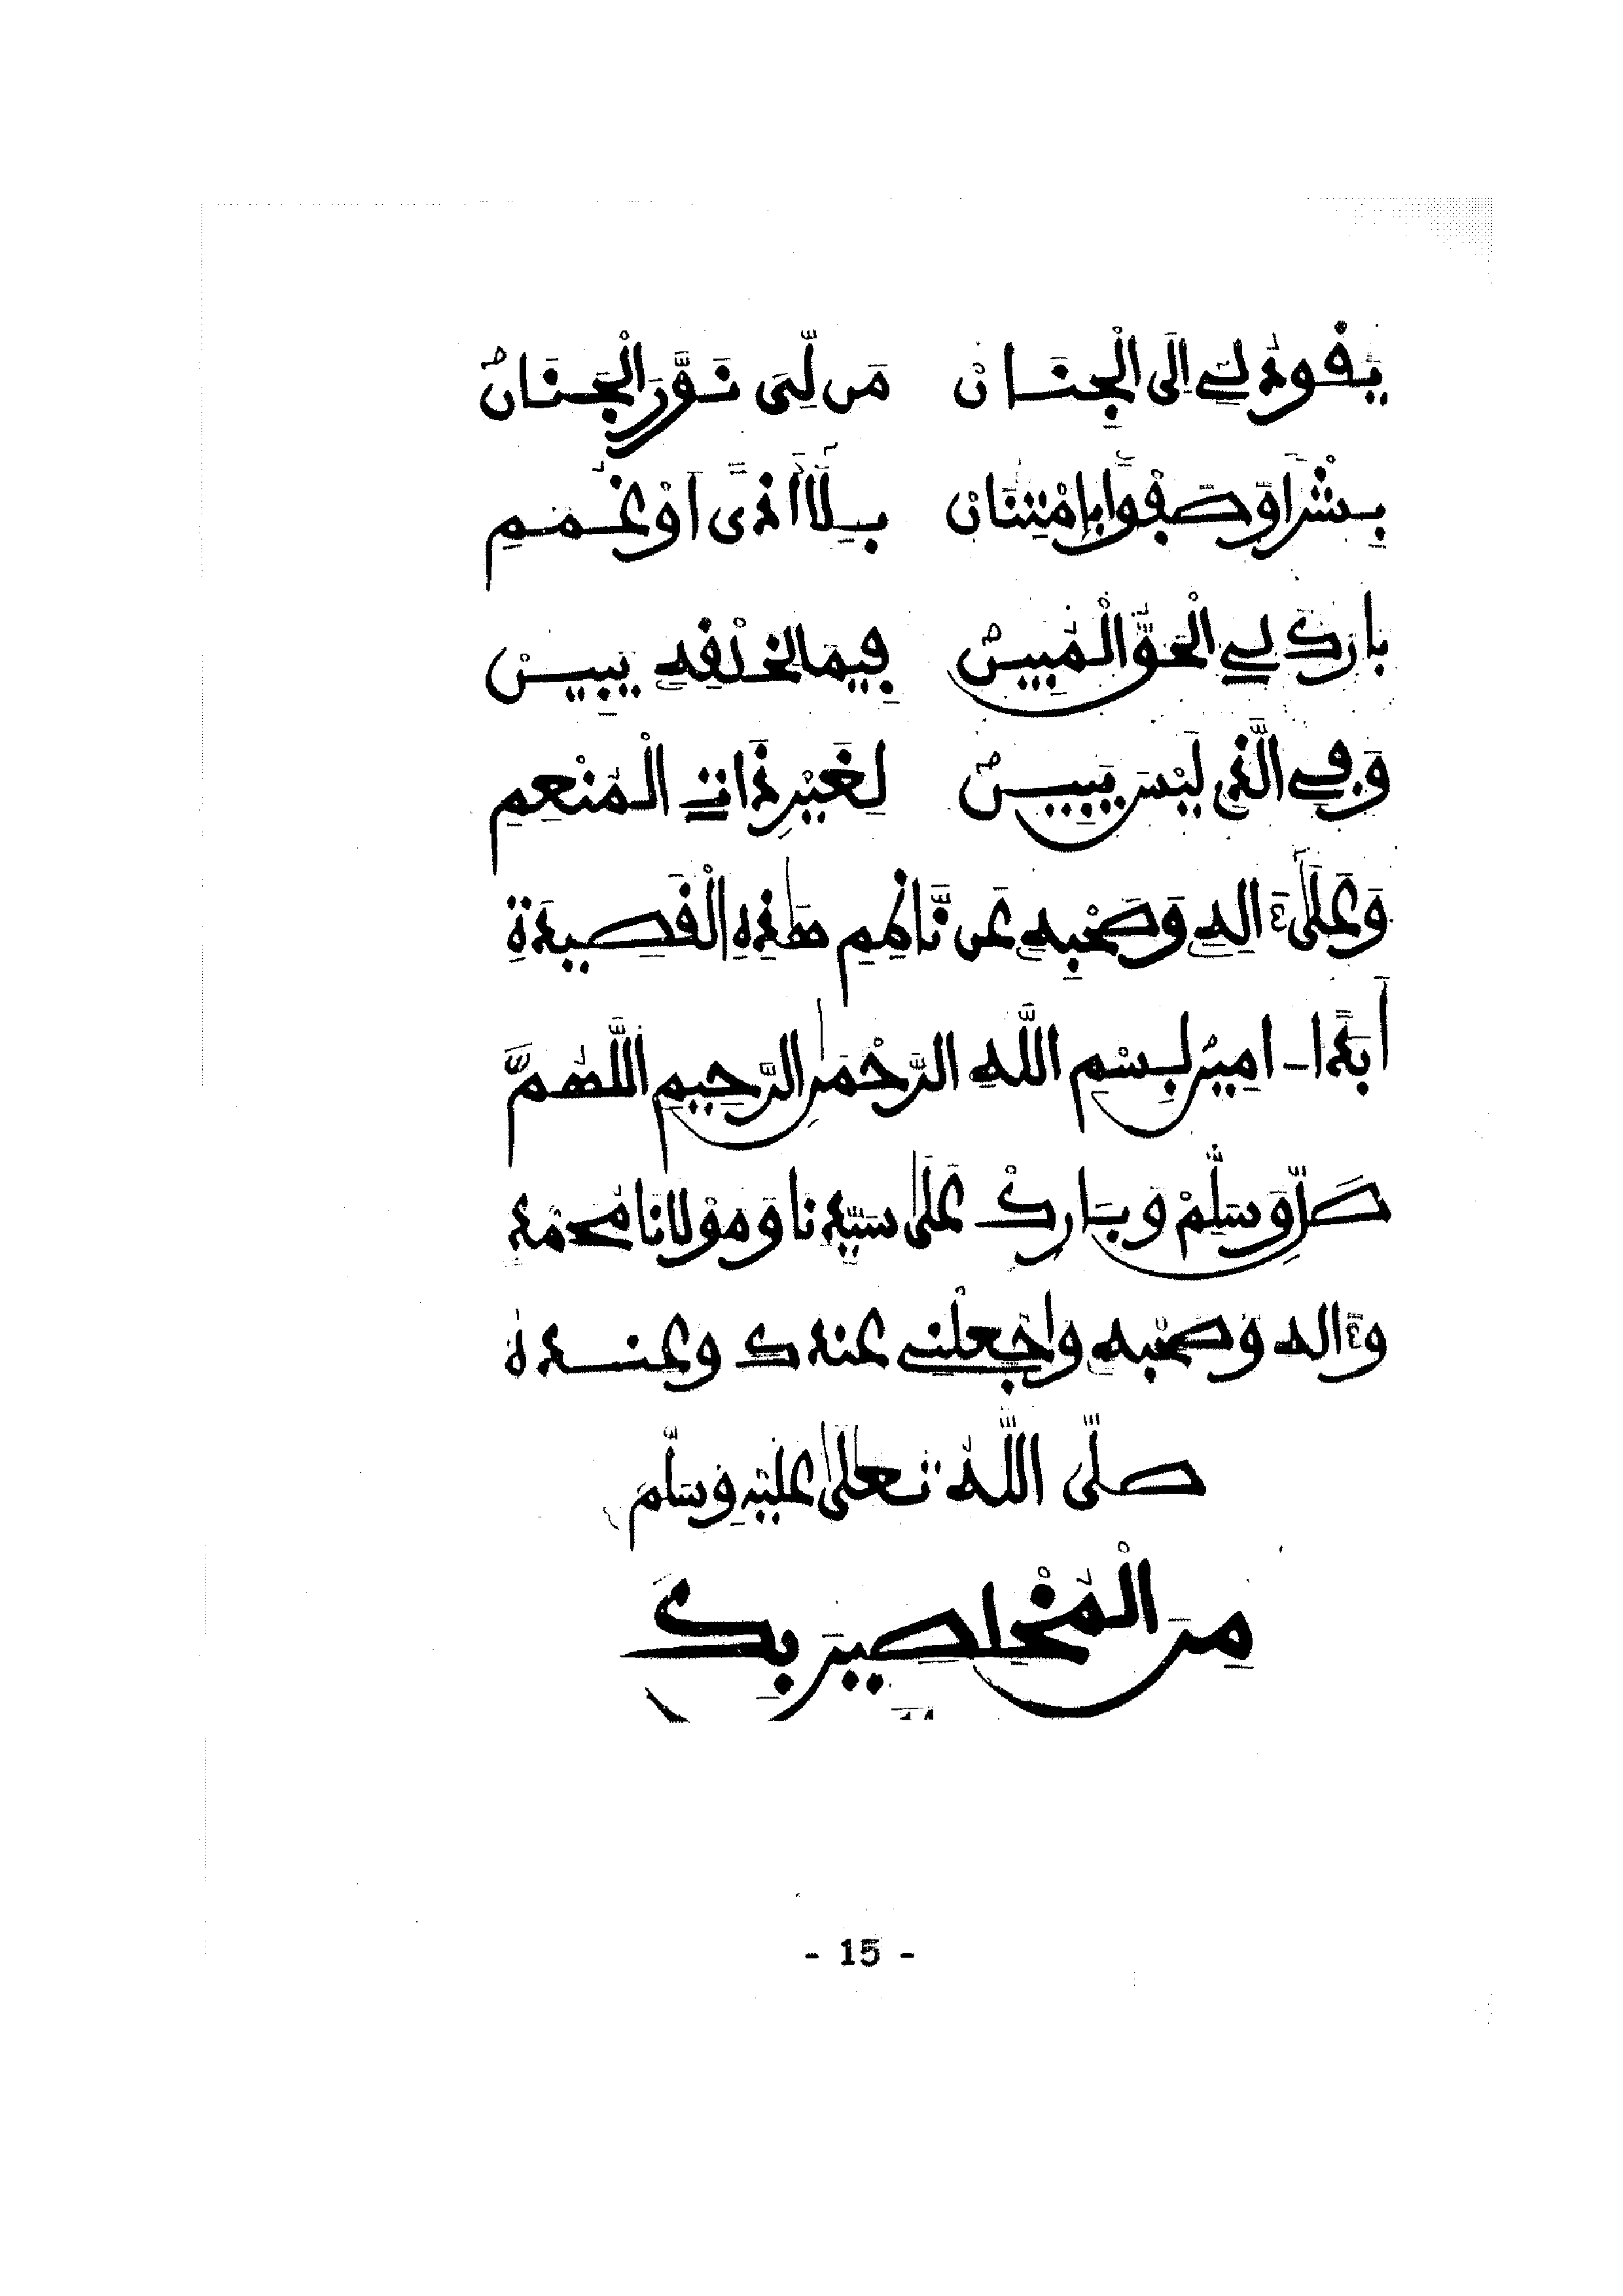 يَقُودُ لِي إِلَى الْجِنَانْ مَن لِّى نَوَّرَ الْجَنَانُ
بِشْرًا وَصَفْوًا بِامْتِنَانْ بِلَا أَذًى أَوْ غُمَمِ
بَارَكَ لِي الْحَقُّ الْمُبِينُ فِيمَا لِخَلْقِهِ يَبِينْ
وَفِي الَّذِي لَيْسَ يَبِينُ لِغَيْرِ ذَاتِ الْمُنْعِمِ
وَعَلَىٰ ءَالِهِ وَصَحْبِهِ عَن نَّاظِمِ هَٰذِهِ الْقَصِيدَةِ
أَبَدًا ـ امِينَ بِسْمِ اللَّهِ الرَّحْمَٰنِ الرَّحِيمِ اللَّهُمَّ
صَلِّ وَسَلِّمْ وَبَارِكْ عَلَىٰ سَيِّدِنَا وَمَوْلَانَا مُحَمَّد
وءَالِهِ وَصَحْبِهِ وَاجْعَلْنِي عِندَكَ وَعِندَهُ
صَلَّى اللَّهُ تَعَالَىٰ عَلَيْهِ وَسَلَّمَ
مِنَ الْمُخْلِصِينَ بِكَ
- 15 -